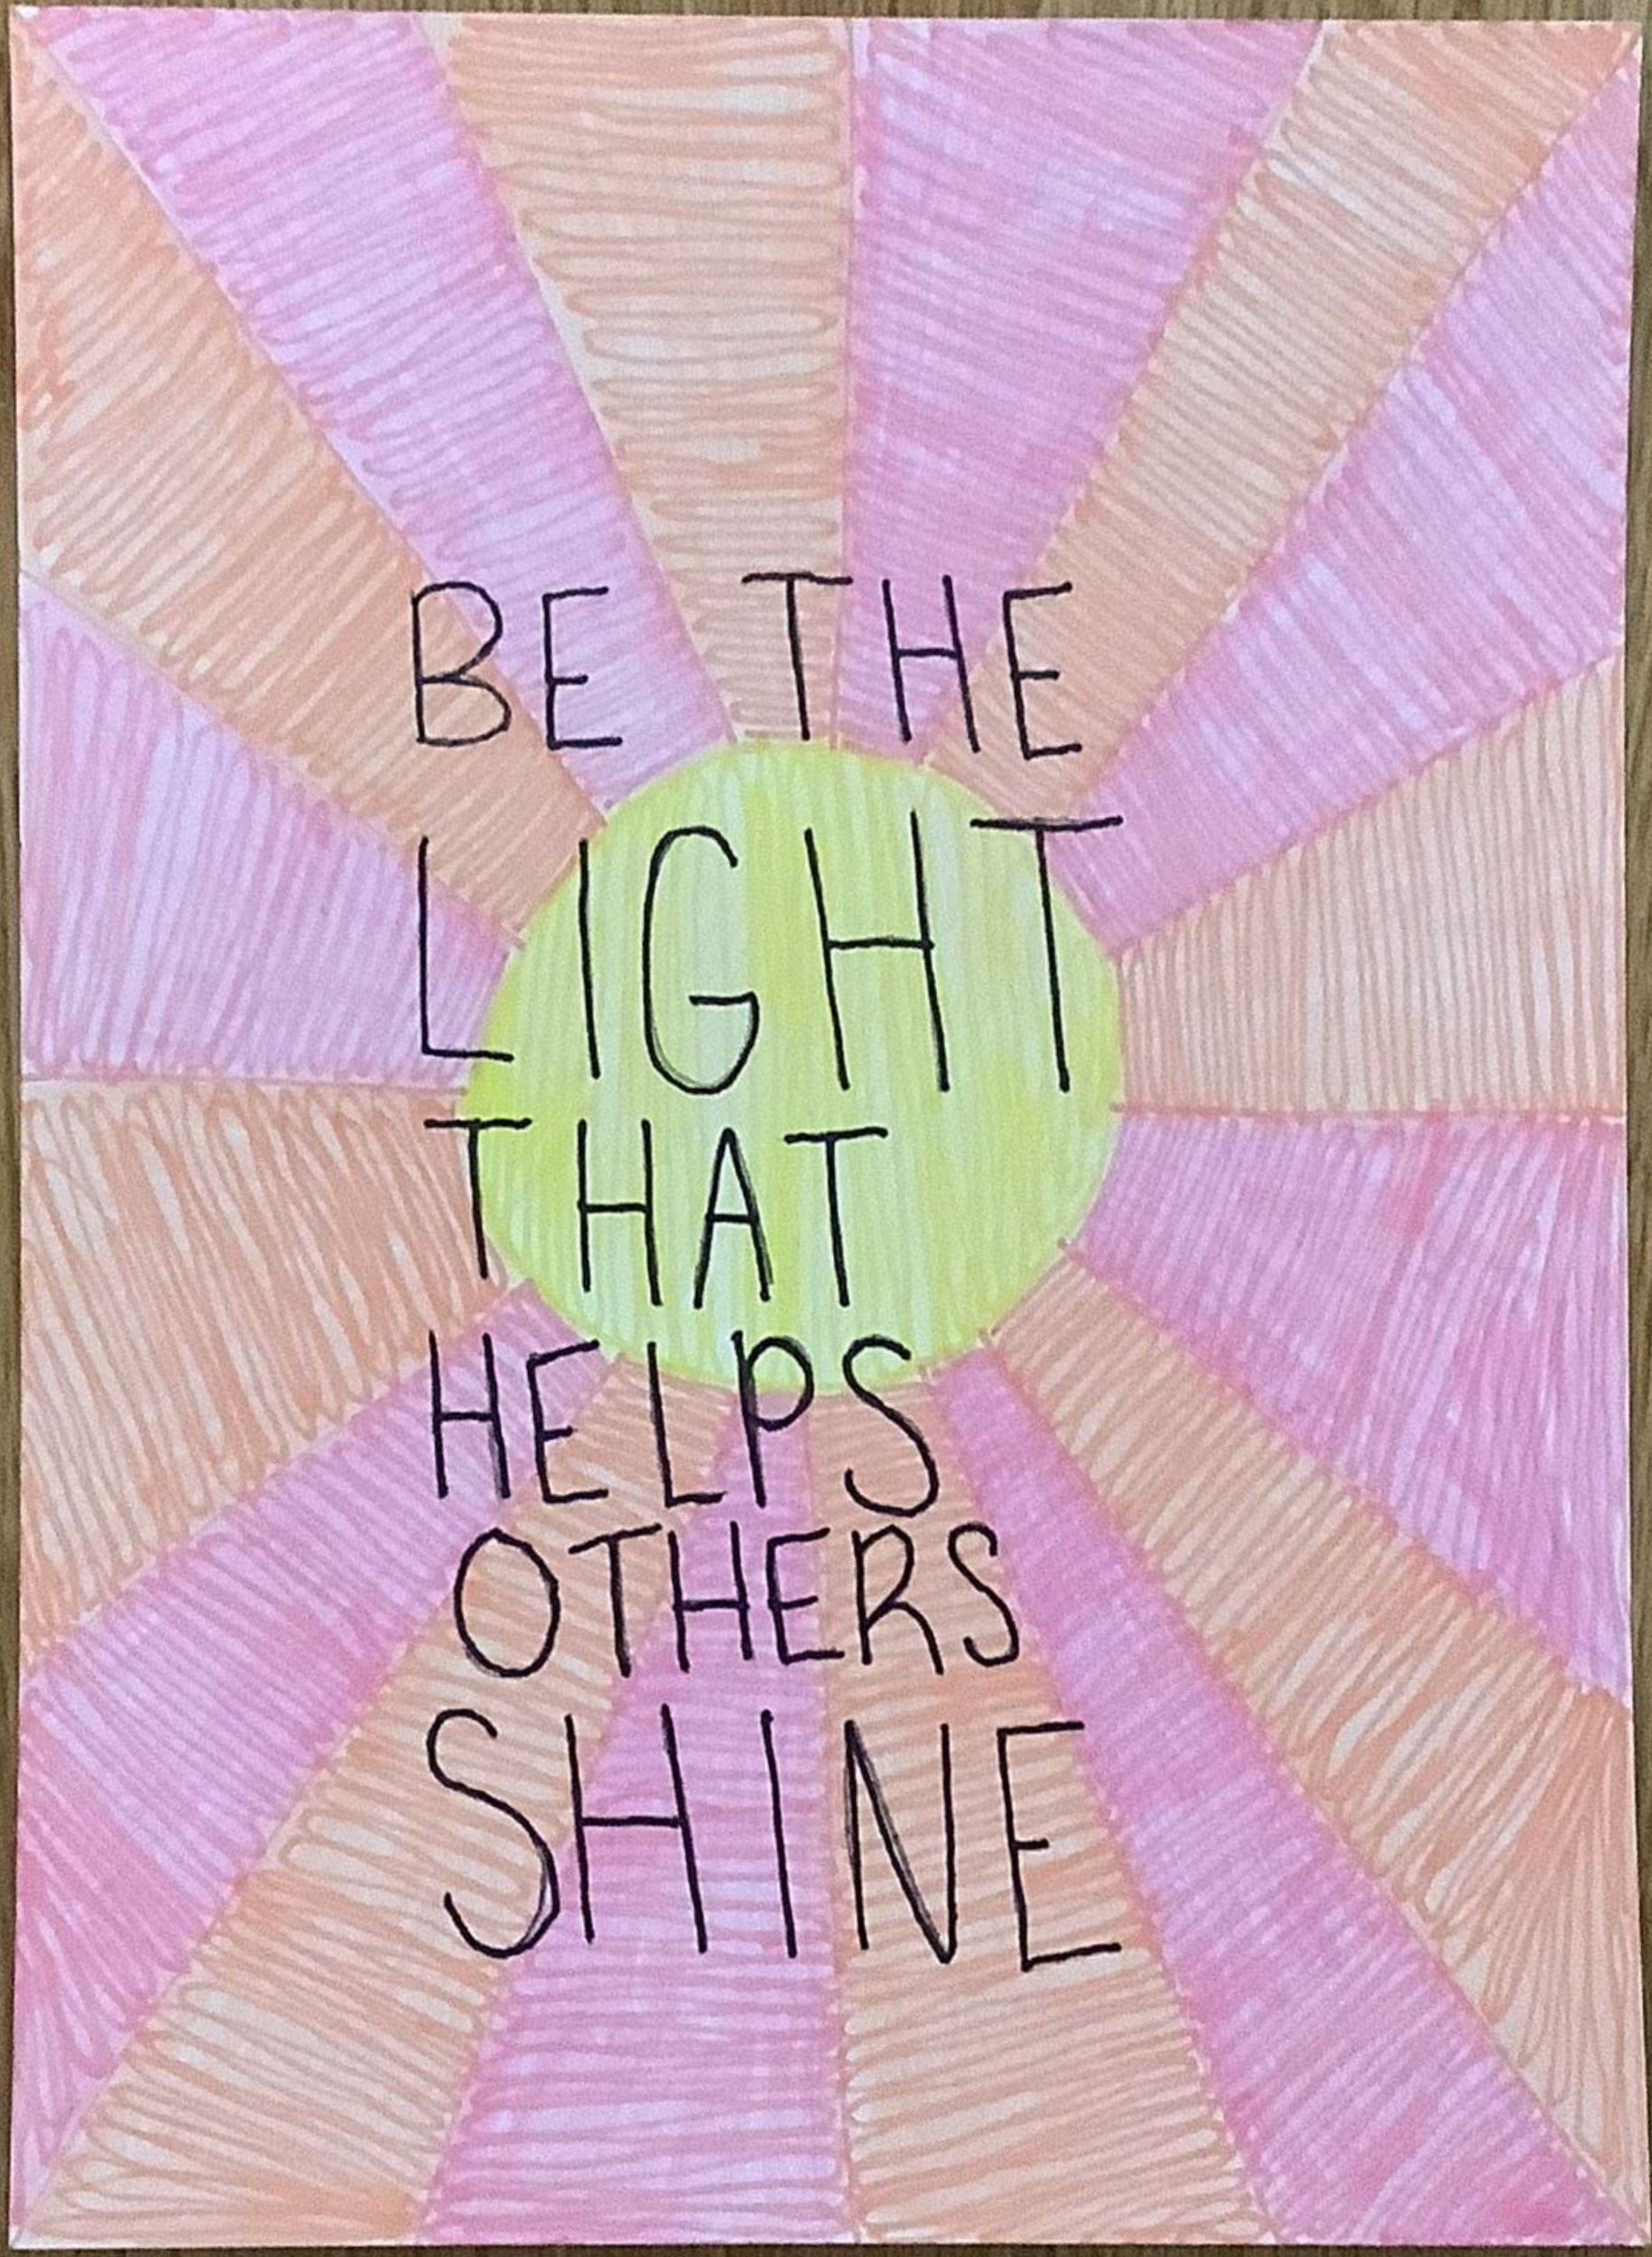 BE THE
LIGHT
THAT
HELPS
OTHERS
SHINE